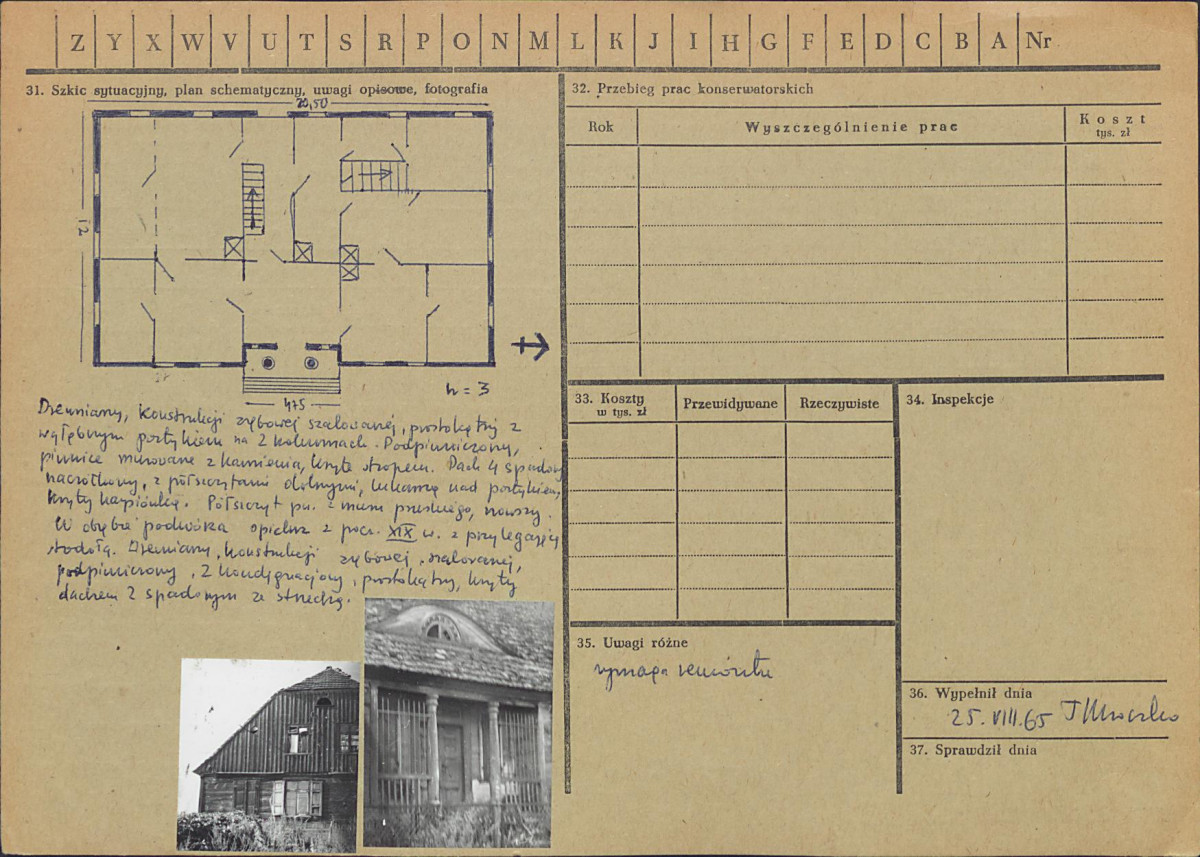 Z Y X W V U T S R P O N M L K J I H G F E D C B A Nr
31. Szkic sytuacyjny, plan schematyczny, uwagi opisowe, fotografia
20,50
12
475
h = 3
Drewniany, konstrukcji zrębowej szalowanej, prostokątny z
wgłębnym portykiem na 2 kolumnach. Podpiwniczony,
piwnice murowane z kamienia, kryte stropem. Dach 4 spadowy
naczółkowy, z półszczytami dolnymi, lukarną nad portykiem,
kryty karpiówką. Półszczyt pn. z muru pruskiego, nowszy.
W obrębie podwórka spichrz z pocz. XIX w. z przylegającą
stodołą. Drewniany, konstrukcji zrębowej, szalowanej,
podpiwniczony, 2 kondygnacjowy, prostokątny, kryty
dachem 2 spadowym ze strzechą.
32. Przebieg prac konserwatorskich
Rok
Wyszczególnienie prac
Koszt
tys. zł
33. Koszty
w tys. zł
Przewidywane
Rzeczywiste
34. Inspekcje
35. Uwagi różne
wymaga remontu
36. Wypełnił dnia
25. VIII. 65
37. Sprawdził dnia